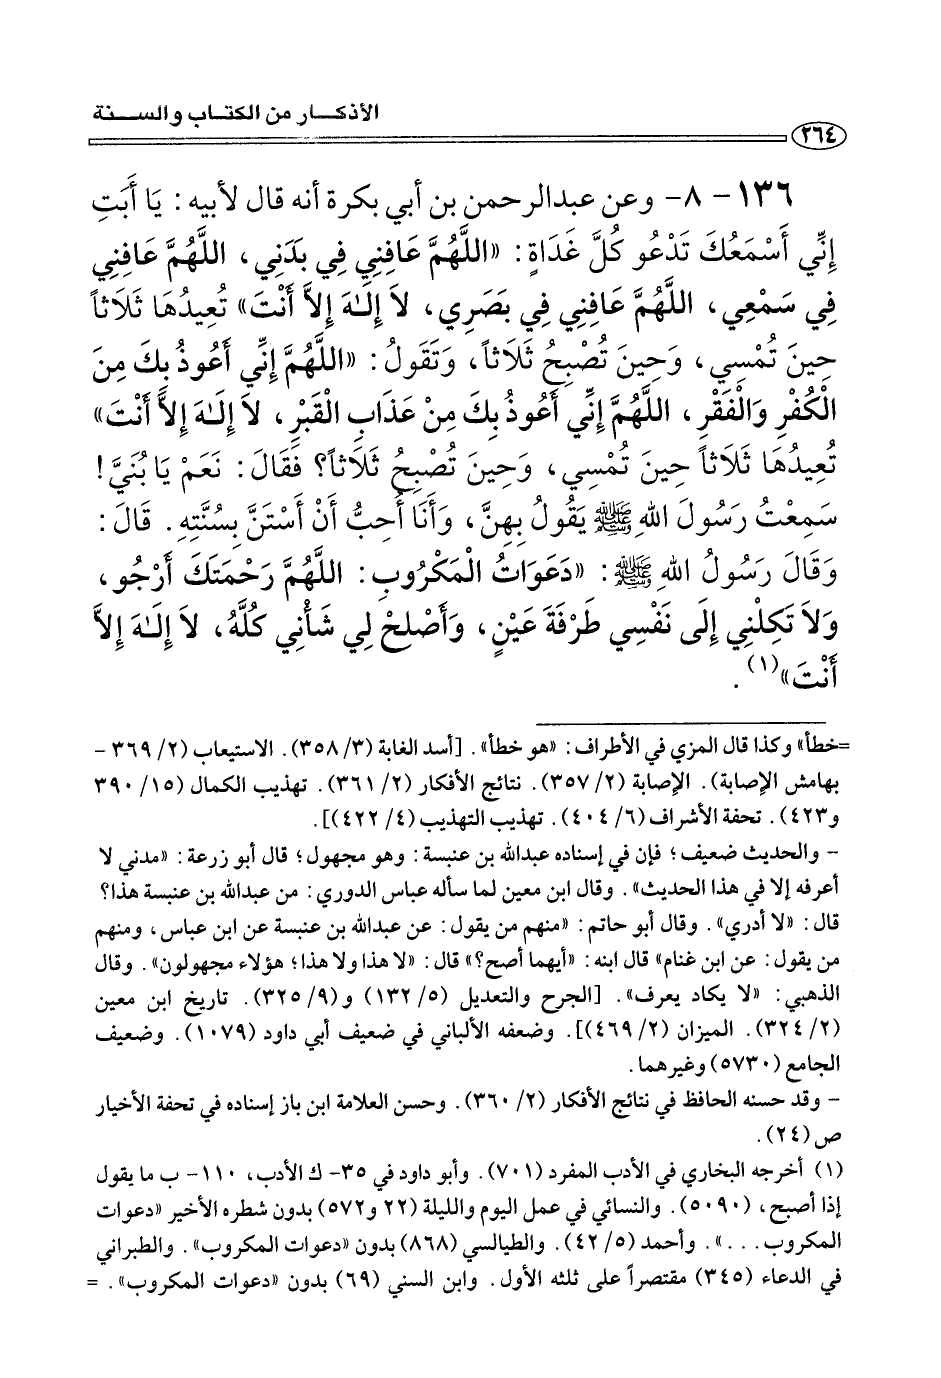 الأذكـــار من الكتـاب والســـنة
٢٦٤
١٣٦ - ٨- وعن عبدالرحمن بن أبي بكرة أنه قال لأبيه : يَا أَبَتِ
إِنِّي أَسْمَعُكَ تَدْعُو كُلَّ غَدَاةٍ : «اللَّهُمَّ عَافِنِي فِي بَدَنِي، اللَّهُمَّ عَافِنِي
فِي سَمْعِي، اللَّهُمَّ عَافِنِي فِي بَصَرِي، لاَ إِلَـٰهَ إِلاَّ أَنْتَ» تُعِيدُهَا ثَلَاثاً
حِينَ تُمْسِي، وَحِينَ تُصْبِحُ ثَلَاثاً، وَتَقُولُ : «اللَّهُمَّ إِنِّي أَعُوذُ بِكَ مِنَ
الْكُفْرِ وَالْفَقْرِ، اللَّهُمَّ إِنِّي أَعُوذُ بِكَ مِنْ عَذَابِ الْقَبْرِ، لاَ إِلَـٰهَ إِلاَّ أَنْتَ»
تُعِيدُهَا ثَلَاثاً حِينَ تُمْسِي، وَحِينَ تُصْبِحُ ثَلَاثاً؟ فَقَالَ : نَعَمْ يَا بُنَيَّ !
سَمِعْتُ رَسُولَ اللهِ ﷺ يَقُولُ بِهِنَّ، وَأَنَا أُحِبُّ أَنْ أَسْتَنَّ بِسُنَّتِهِ. قَالَ :
وَقَالَ رَسُولُ اللهِ ﷺ : «دَعَوَاتُ الْمَكْرُوبِ : اللَّهُمَّ رَحْمَتَكَ أَرْجُو،
وَلاَ تَكِلْنِي إِلَى نَفْسِي طَرْفَةَ عَيْنٍ، وَأَصْلِحْ لِي شَأْنِي كُلَّهُ، لاَ إِلَـٰهَ إِلاَّ
أَنْتَ»(١) .
=خطأ» وكذا قال المزي في الأطراف : «هو خطأ». [أسد الغابة (٣/ ٣٥٨). الاستيعاب (٢/ ٣٦٩ -
بهامش الإصابة). الإصابة (٢/ ٣٥٧). نتائج الأفكار (٢/ ٣٦١). تهذيب الكمال (١٥/ ٣٩٠
و٤٢٣). تحفة الأشراف (٦/ ٤٠٤). تهذيب التهذيب (٤/ ٤٢٢)].
- والحديث ضعيف؛ فإن في إسناده عبدالله بن عنبسة : وهو مجهول؛ قال أبو زرعة : «مدني لا
أعرفه إلا في هذا الحديث». وقال ابن معين لما سأله عباس الدوري : من عبدالله بن عنبسة هذا؟
قال : «لا أدري». وقال أبو حاتم : «منهم من يقول : عن عبدالله بن عنبسة عن ابن عباس، ومنهم
من يقول : عن ابن غنام» قال ابنه : «أيهما أصح؟» قال : «لا هذا ولا هذا؛ هؤلاء مجهولون». وقال
الذهبي : «لا يكاد يعرف». [الجرح والتعديل (٥/ ١٣٢) و(٩/ ٣٢٥). تاريخ ابن معين
(٢/ ٣٢٤). الميزان (٢/ ٤٦٩)]. وضعفه الألباني في ضعيف أبي داود (١٠٧٩). وضعيف
الجامع (٥٧٣٠) وغيرهما.
- وقد حسنه الحافظ في نتائج الأفكار (٢/ ٣٦٠). وحسن العلامة ابن باز إسناده في تحفة الأخيار
ص (٢٤).
(١) أخرجه البخاري في الأدب المفرد (٧٠١). وأبو داود في ٣٥- ك الأدب، ١١٠- ب ما يقول
إذا أصبح، (٥٠٩٠). والنسائي في عمل اليوم والليلة (٢٢ و٥٧٢) بدون شطره الأخير «دعوات
المكروب...». وأحمد (٥/ ٤٢). والطيالسي (٨٦٨) بدون «دعوات المكروب». والطبراني
في الدعاء (٣٤٥) مقتصراً على ثلثه الأول. وابن السني (٦٩) بدون «دعوات المكروب». =